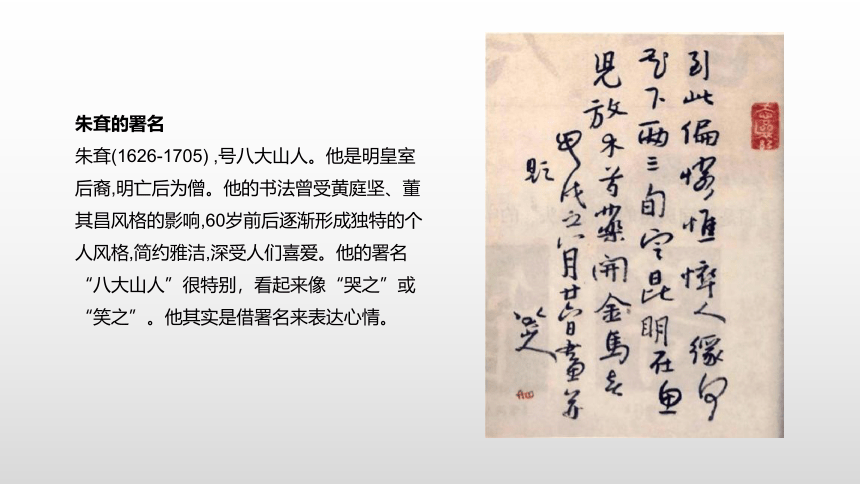 朱耷的署名
朱耷(1626-1705) ,号八大山人。他是明皇室
后裔,明亡后为僧。他的书法曾受黄庭坚、董
其昌风格的影响,60岁前后逐渐形成独特的个
人风格,简约雅洁,深受人们喜爱。他的署名
“八大山人”很特别，看起来像“哭之”或
“笑之”。他其实是借署名来表达心情。
到此偏憐憔悴人緣何
花下兩三旬定昆明在魚
兒放木芍藥開金馬春
甲戌之月廿六日畫并
題
八大山人